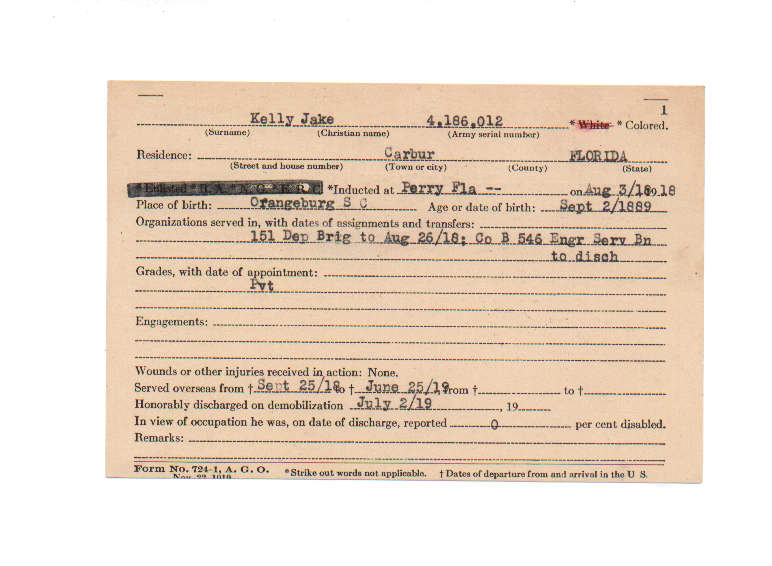 1
Kelly Jake 4,186,012 * White * Colored.
(Surname) (Christian name) (Army serial number)
Residence: Carbur FLORIDA
(Street and house number) (Town or city) (County) (State)
* Enlisted * R. A. * N. G. * E. R. C. *Inducted at Perry Fla -- on Aug 3/18 1918
Place of birth: Orangeburg S C Age or date of birth: Sept 2/1889
Organizations served in, with dates of assignments and transfers:
151 Dep Brig to Aug 26/18; Co B 546 Engr Serv Bn
to disch
Grades, with date of appointment:
Pvt
Engagements:
Wounds or other injuries received in action: None.
Served overseas from † Sept 25/18 to † June 25/19 from † to †
Honorably discharged on demobilization July 2/19, 19
In view of occupation he was, on date of discharge, reported 0 per cent disabled.
Remarks:
Form No. 724-1, A. G. O. *Strike out words not applicable. † Dates of departure from and arrival in the U S.
Nov. 22, 1919